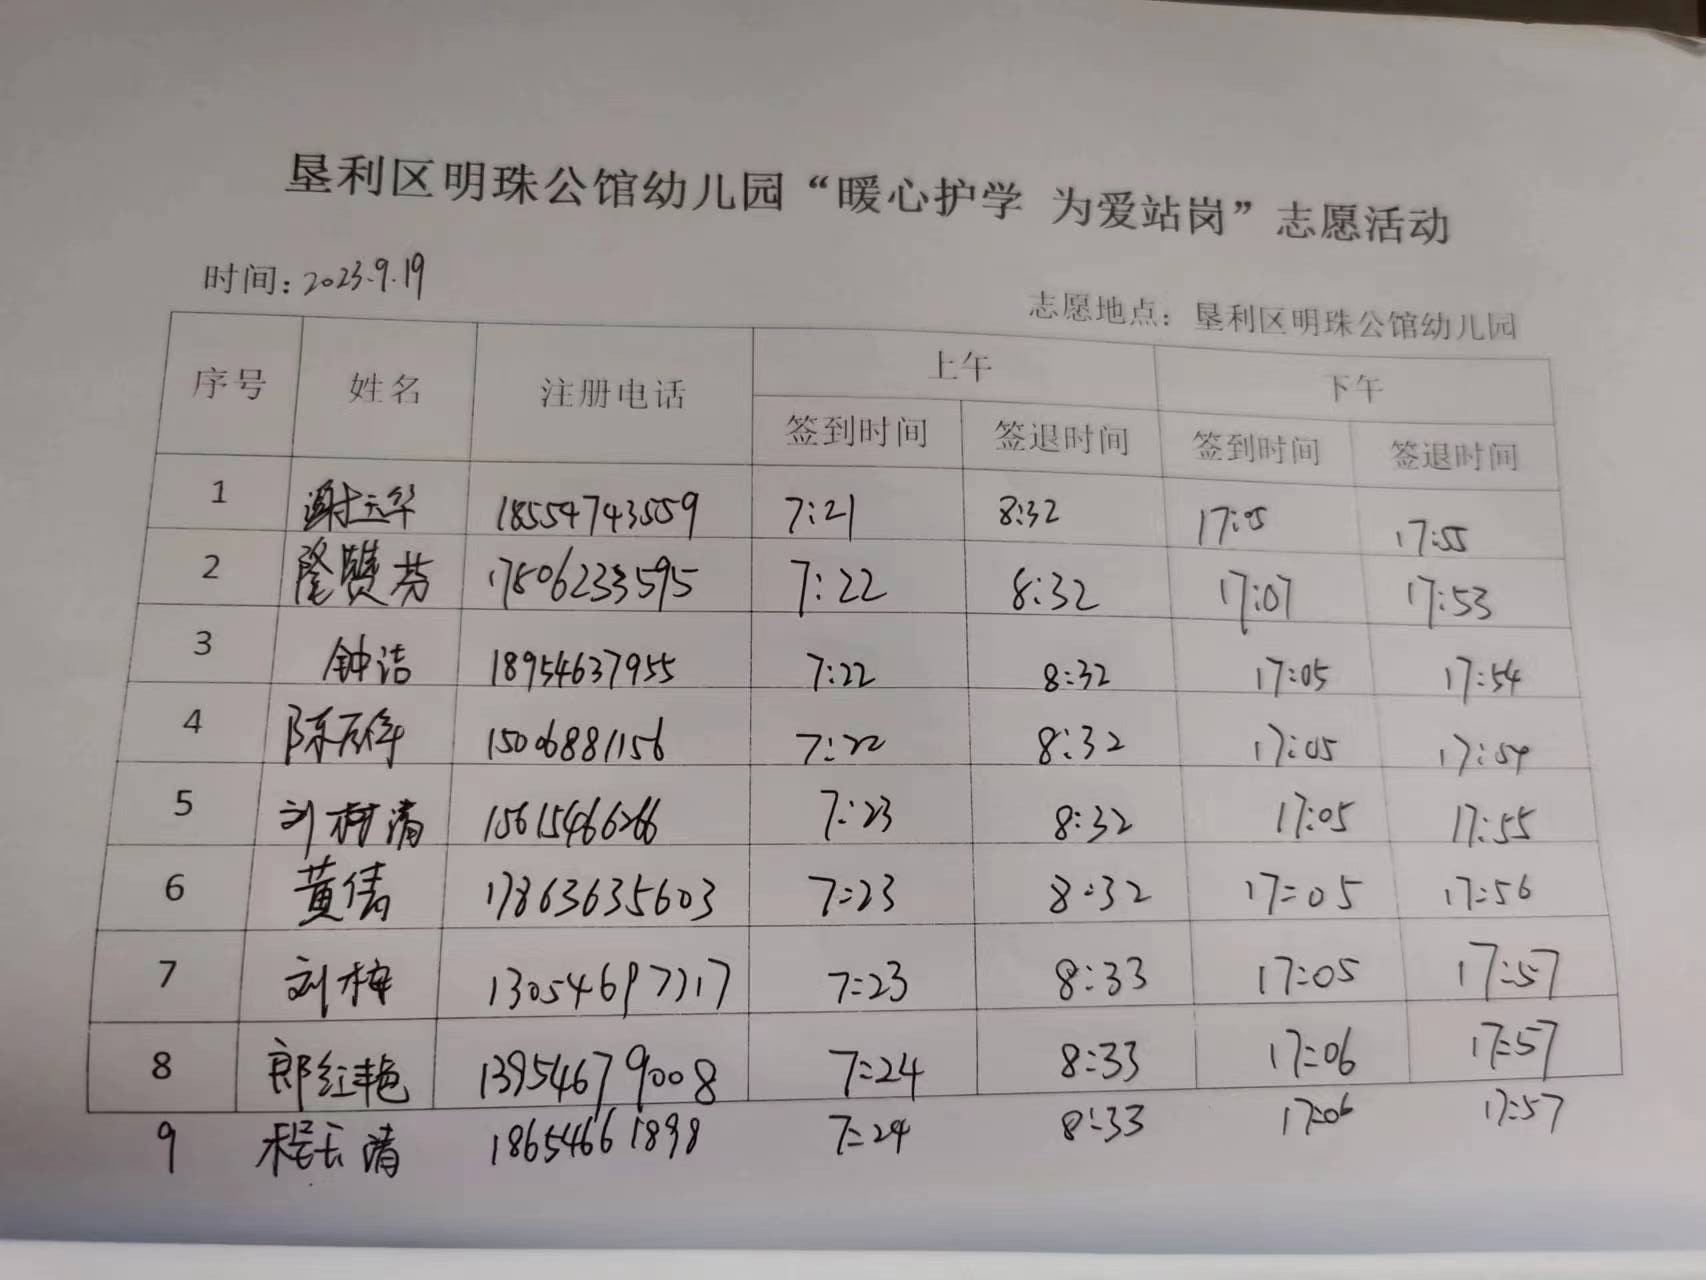 垦利区明珠公馆幼儿园“暖心护学 为爱站岗”志愿活动
时间：2023.9.19
志愿地点：垦利区明珠公馆幼儿园
序号 姓名 注册电话 上午 下午
签到时间 签退时间 签到时间 签退时间
1 谢玉华 18554743559 7:21 8:32 17:05 17:55
2 隆赞芬 17806233595 7:22 8:32 17:07 17:53
3 钟洁 18954637955 7:22 8:32 17:05 17:54
4 陈 15006881156 7:22 8:32 17:05 17:54
5 刘树清 15615466266 7:23 8:32 17:05 17:55
6 黄倩 17863635603 7:23 8:32 17:05 17:56
7 刘梅 7:23 8:33 17:05 17:57
8 郎红艳 13954679008 7:24 8:33 17:06 17:57
9 程长清 18654661898 7:24 8:33 17:06 17:57